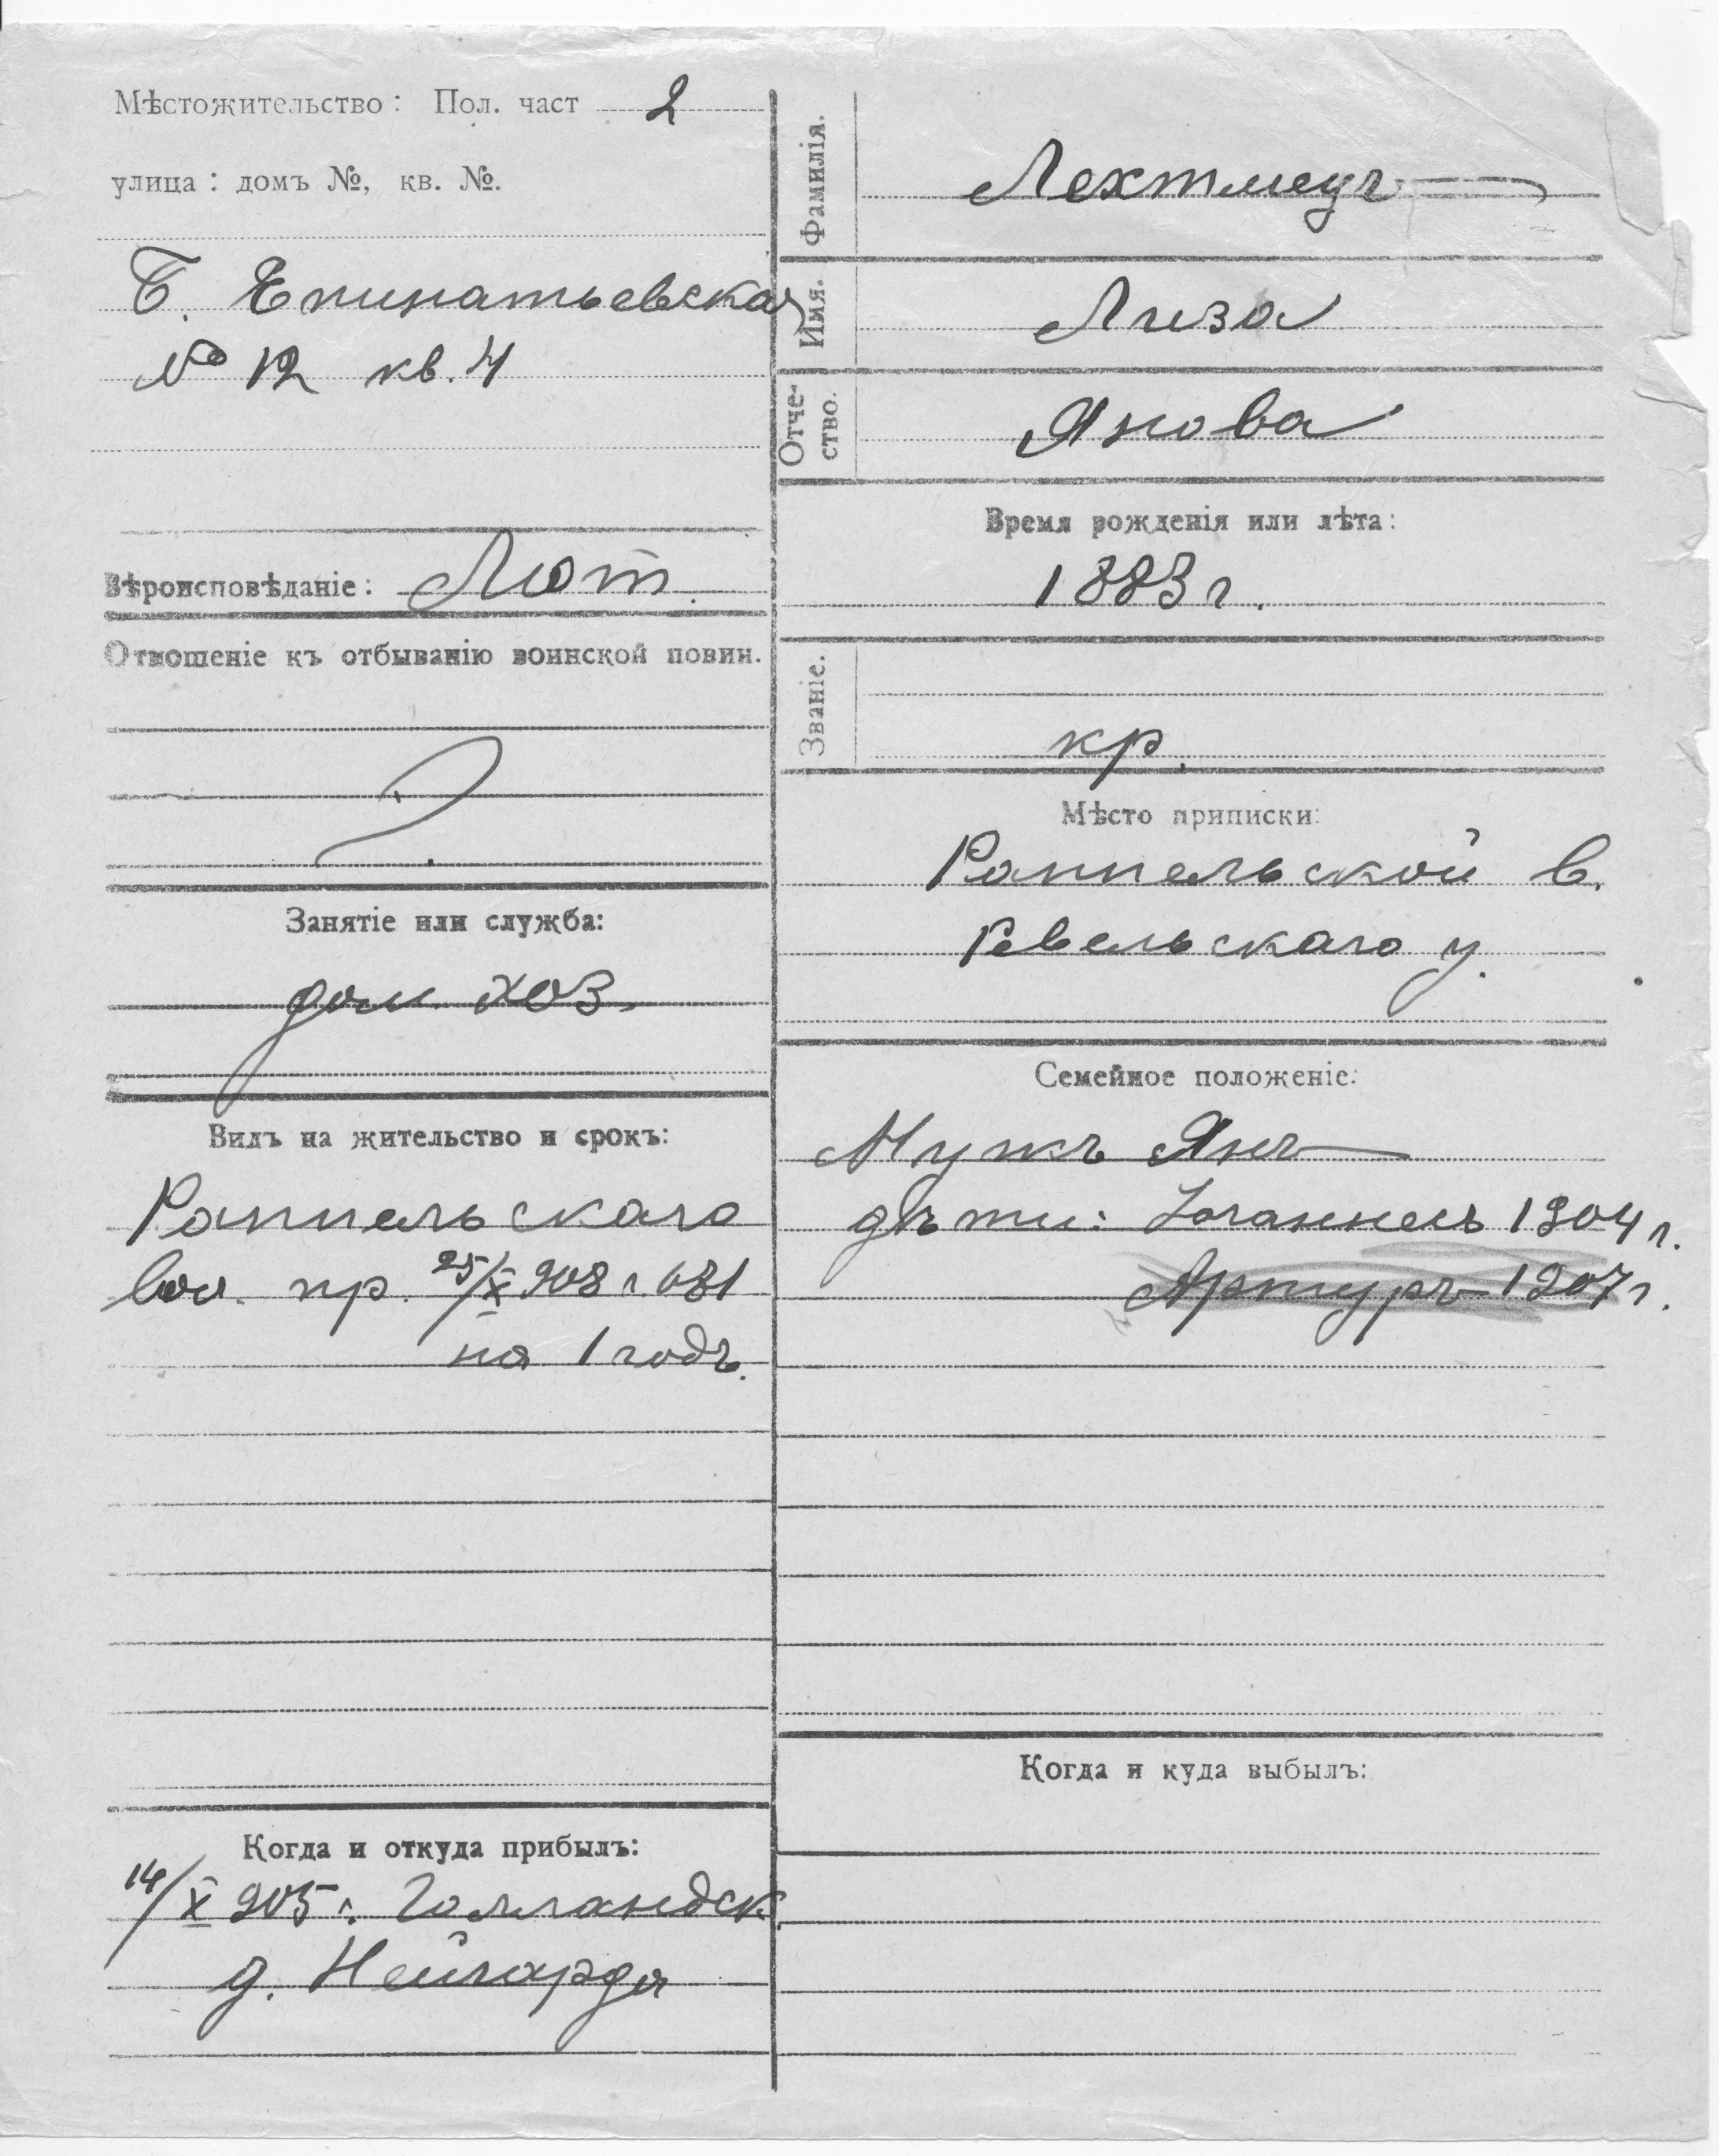 Мѣстожительство: Пол. част 2
улица: домъ №, кв. №.
Б.
№ 12 кв. 4
Вѣроисповѣданіе: Лют.
Отношеніе къ отбыванію воинской повин.
Занятіе или служба:
дом. хоз.
Видъ на жительство и срокъ:
Раппельскаго
вол. пр. 25/X 908 г 681
на 1 годъ.
Когда и откуда прибылъ:
14/X 905 г. Голландск.
д. Нейгарда
Фамилія.
Имя. Лиза
Отчество. Янова
Время рожденія или лѣта:
1883 г.
Званіе.
кр.
Мѣсто приписки:
Раппельской в.
Ревельскаго у.
Семейное положеніе:
Мужъ Янъ
дѣти: Іоганнесъ 1904 г.
Артуръ 1907 г.
Когда и куда выбылъ: